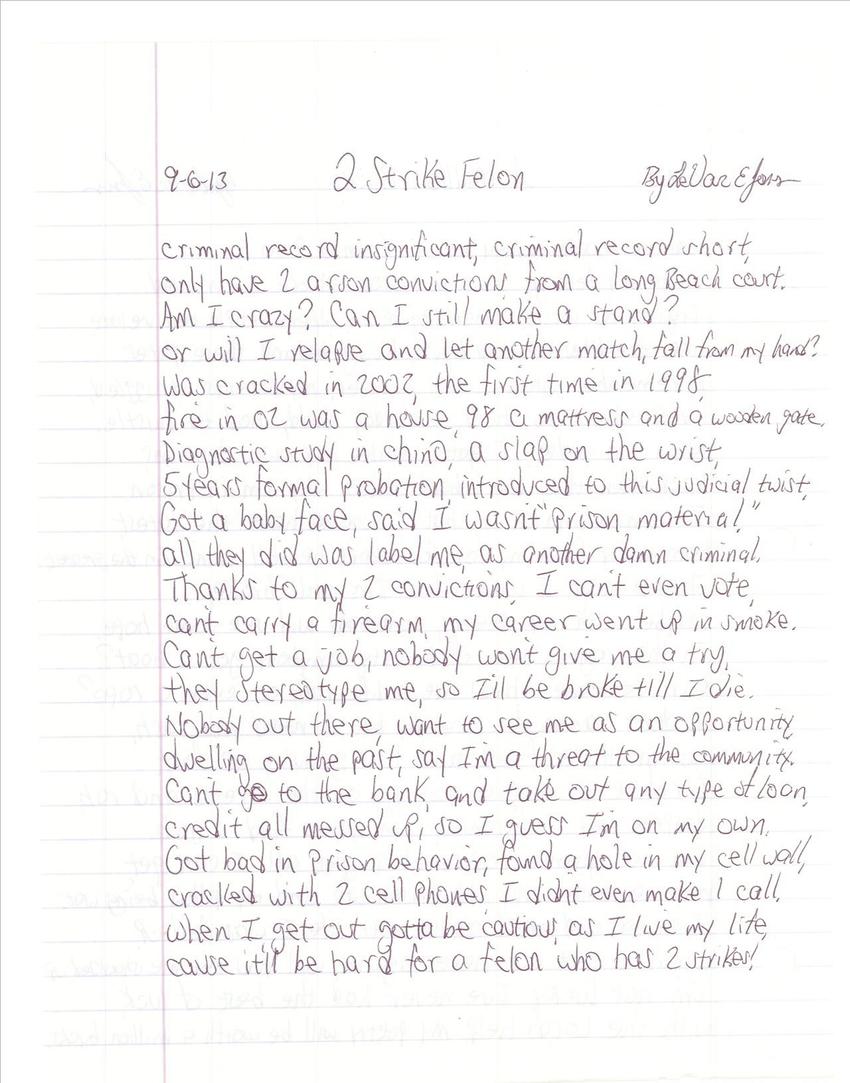 9-6-13 2 Strike Felon By LeVar
criminal record insignificant, criminal record short,
only have 2 arson convictions from a Long Beach court.
Am I crazy? Can I still make a stand?
or will I relapse and let another match, fall from my hand?
Was cracked in 2002, the first time in 1998,
fire in 02 was a house, 98 a mattress and a wooden gate.
Diagnostic study in chino, a slap on the wrist,
5 years formal probation, introduced to this judicial twist,
Got a baby face, said I wasnt "prison material,"
all they did was label me, as another damn criminal.
Thanks to my 2 convictions, I can't even vote,
can't carry a firearm, my career went up in smoke.
Can't get a job, nobody won't give me a try,
they stereotype me, so I'll be broke till I die.
Nobody out there, want to see me as an opportunity,
dwelling on the past, say I'm a threat to the community.
Can't go to the bank, and take out any type of loan,
credit all messed up, so I guess I'm on my own.
Got bad in prison behavior, found a hole in my cell wall,
cracked with 2 cell phones I didn't even make 1 call,
when I get out gotta be cautious, as I live my life,
cause it'll be hard for a felon who has 2 strikes!